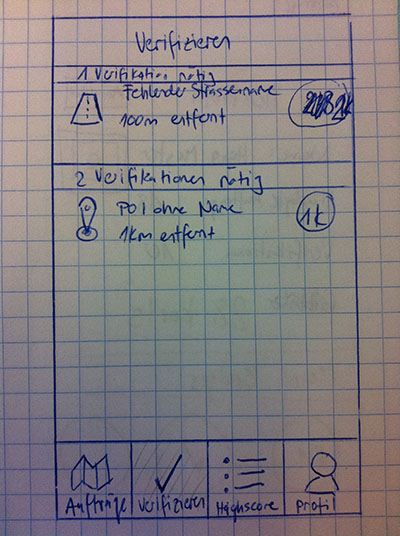 Verifizieren
1 Verifikation nötig
Fehlender Strassenname
100m entfernt
2k
2 Verifikationen nötig
POI ohne Name
1k
1km entfernt
Aufträge
Verifizieren
Highscore
Profil